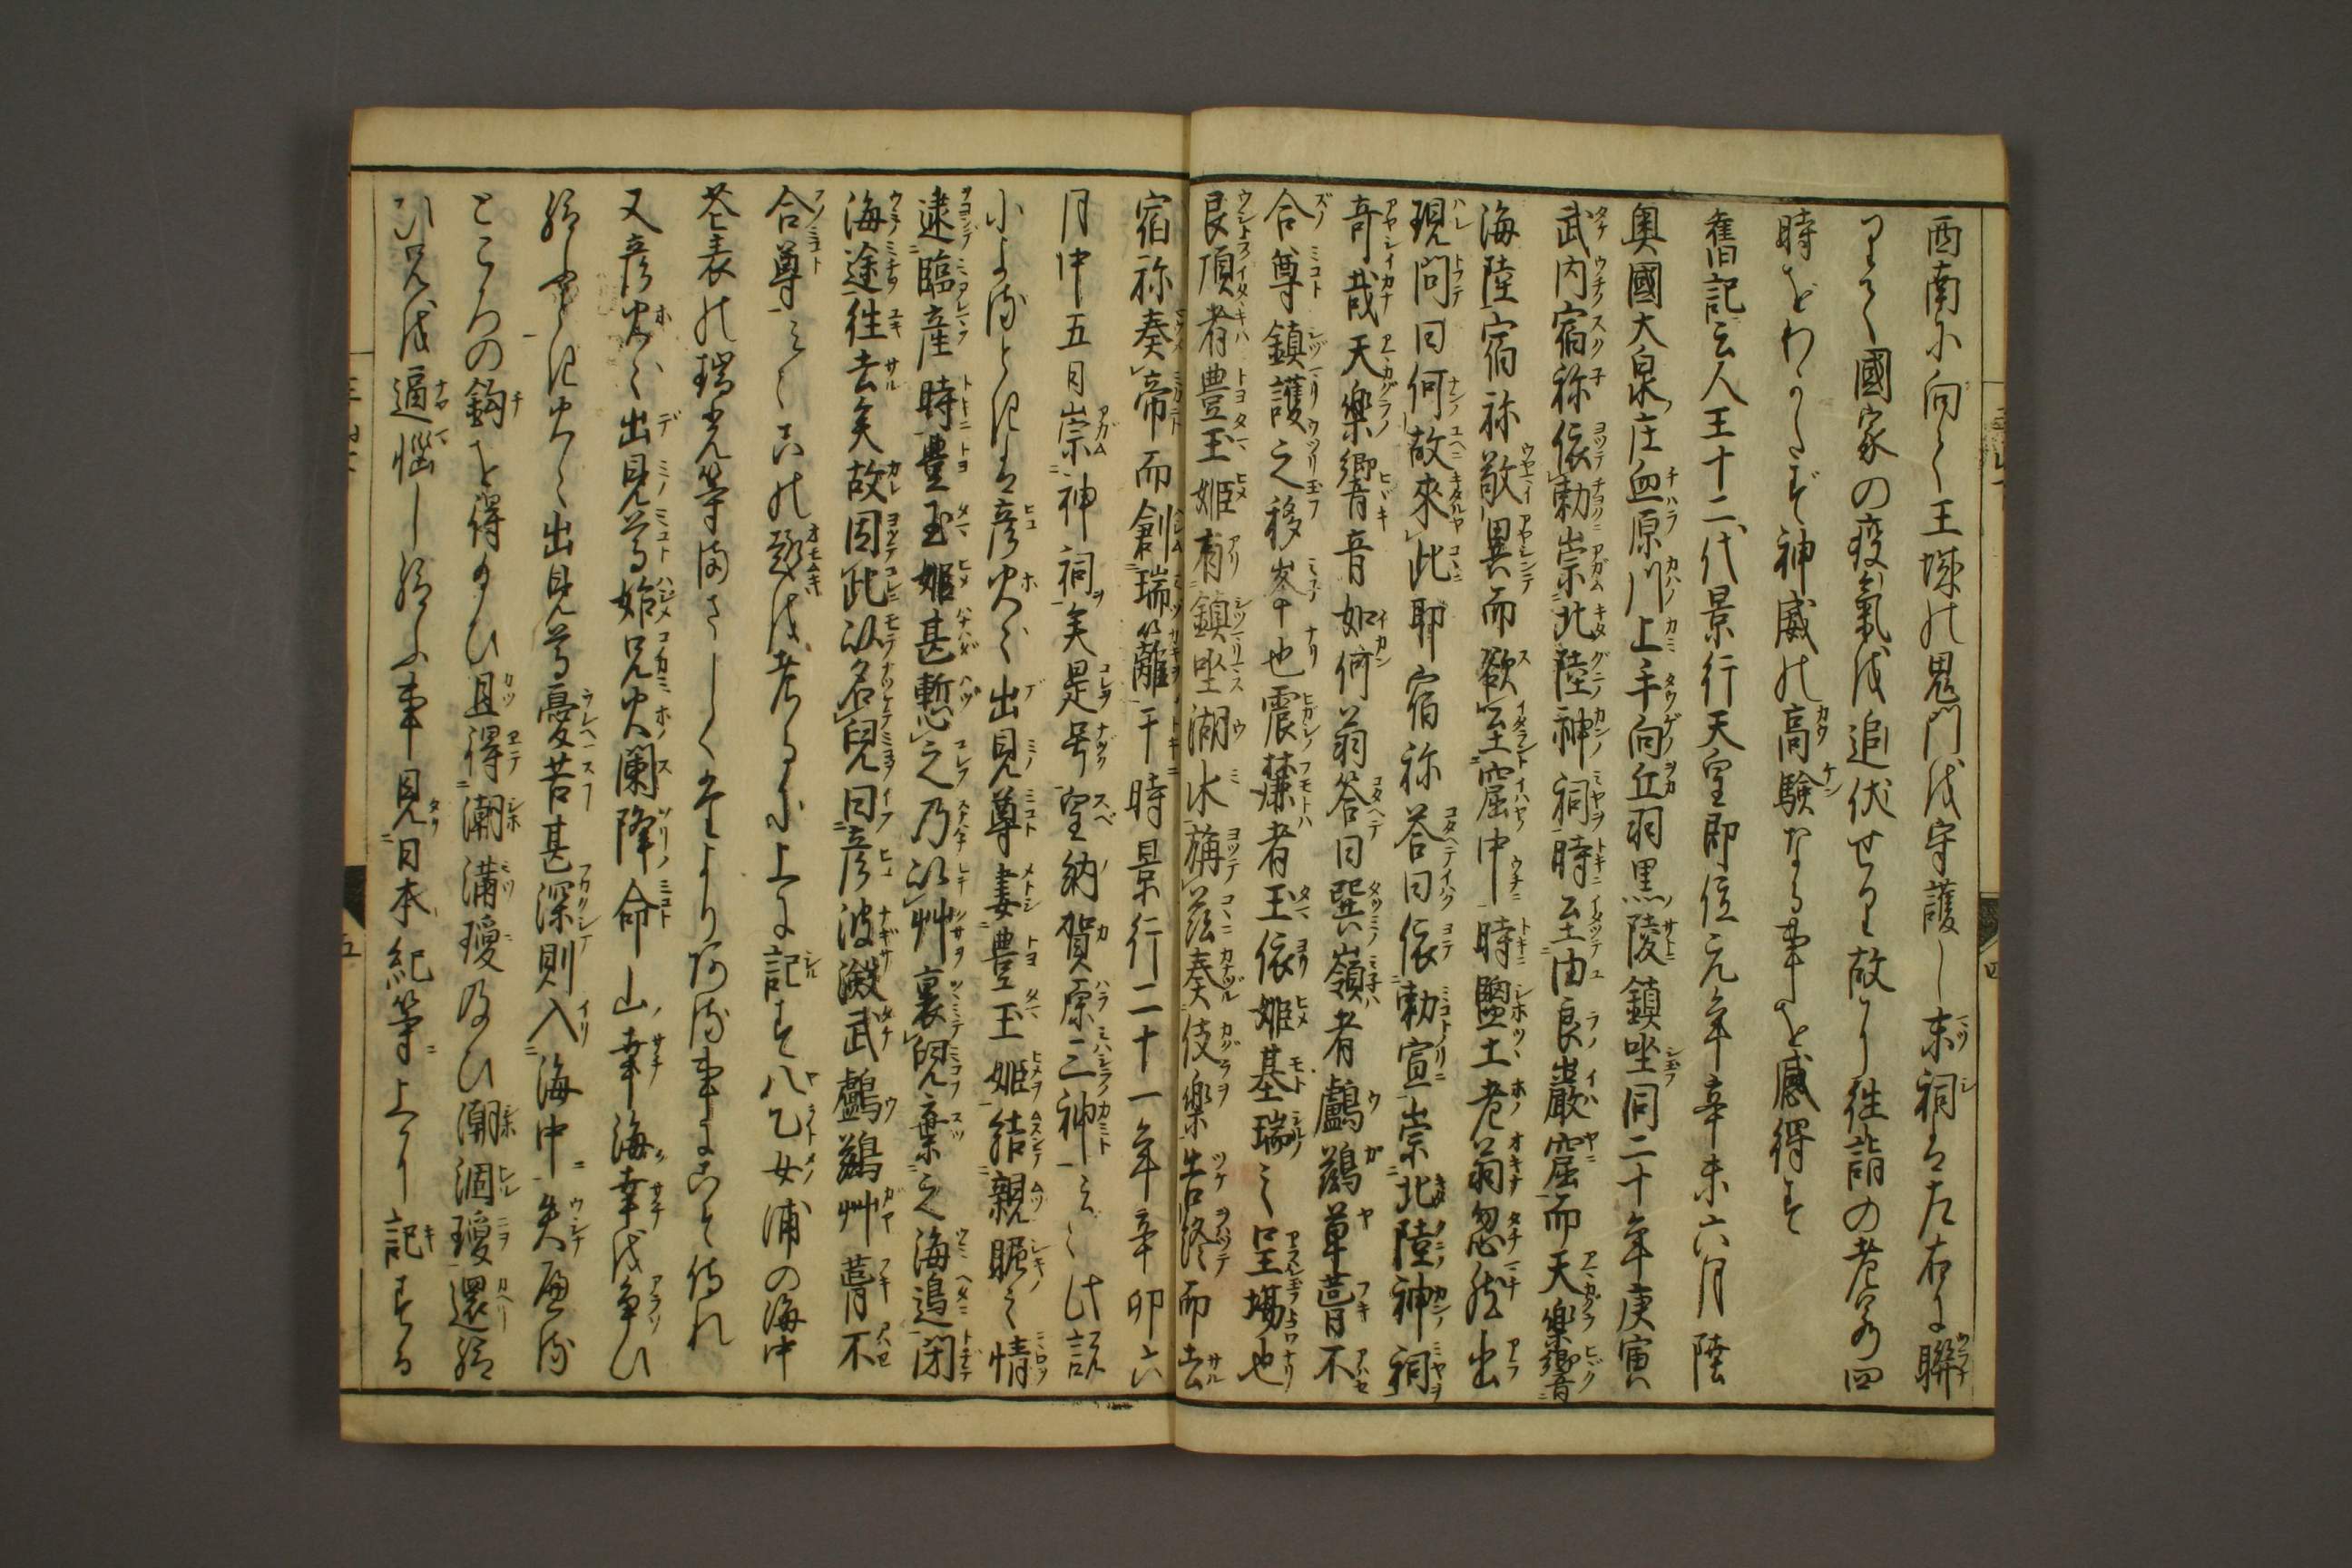 西南に向て王城の鬼門を守護し末祠は左右に聯
りて國家の疫氣を追伏せり故に往詣の老若四
時をわかたず神威の高験なる事を感得す
舊記云人王十二代景行天皇即位元年辛未六月陸
奥國大泉庄血原川上手向丘羽黒陵鎮坐同二十年庚寅
武内宿祢依勅崇北陸神祠時至由良巌窟而天樂響
海陸宿祢敬異而欲至窟中時鹽土老翁忽然出
現問曰何故來此耶宿祢答曰依勅宣崇北陸神祠
奇哉天樂響音如何翁答曰巽嶺者鸕鷀草葺不
合尊鎮護之移峯也震麓者玉依姫基瑞之皇場也
艮頂者豊玉姫有鎮坐湖水旃茲奏伎樂告終而去
宿祢奏帝而創瑞籬干時景行二十一年辛卯六
月中五日崇神祠矣是号皇納賀原三神と云く此説
によるときは彦火々出見尊妻豊玉姫結親昵之情
逮臨産時豊玉姫甚慙之乃以艸裹兒棄之海邉閉
海途徑去矣故因此以名兒曰彦波瀲武鸕鷀艸葺不
合尊と云く古の趣を考るに上に記す八乙女浦の海中
苔表の瑞光等尚さしく是より河る事にこそ侍れ
又彦火々出見尊始兄火闌降命山幸海幸を争ひ
給しとき火々出見尊憂苦甚深則入海中失へる
ところの鈎を得給ひ且得潮満瓊及ひ潮涸瓊還給
ひ兄を逼惱し給ふ事見日本紀等上に記する